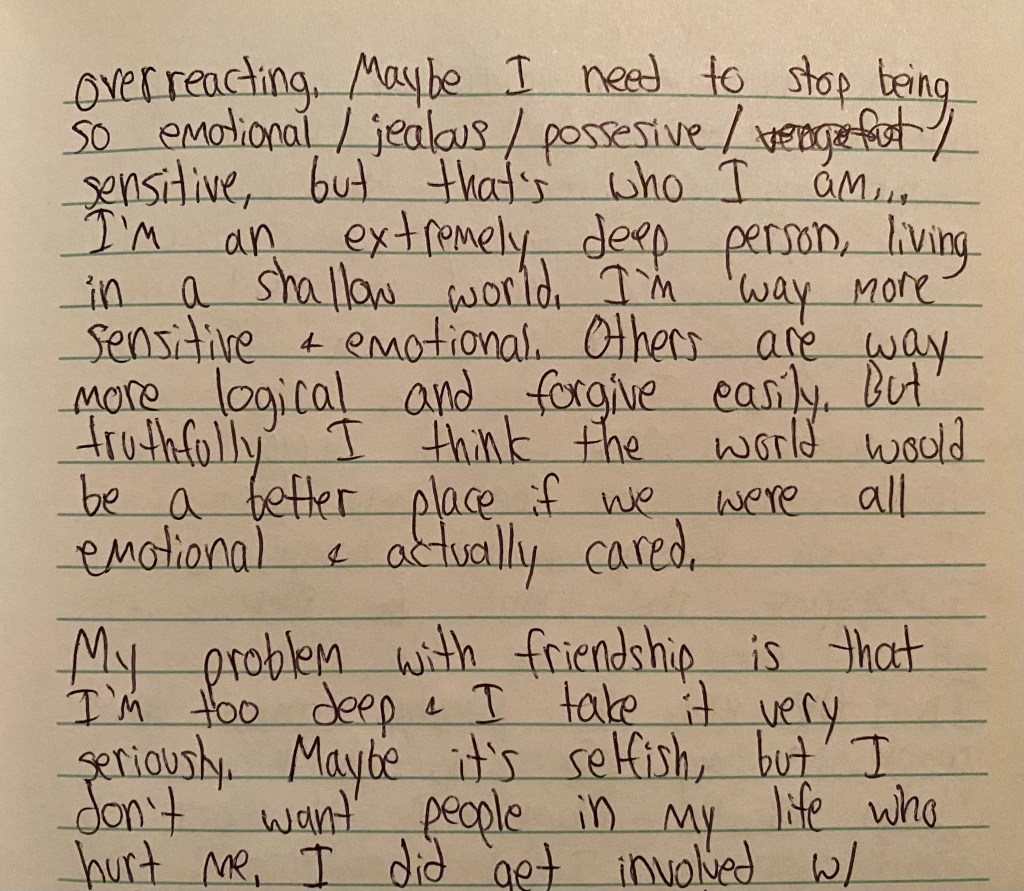 overreacting. Maybe I need to stop being
so emotional / jealous / possesive / vengeful /
sensitive, but that's who I am...
I'm an extremely deep person, living
in a shallow world. I'm way more
sensitive & emotional. Others are way
more logical and forgive easily. But
truthfully I think the world would
be a better place if we were all
emotional & actually cared.
My problem with friendship is that
I'm too deep & I take it very
seriously. Maybe it's selfish, but I
don't want people in my life who
hurt me. I did get involved w/